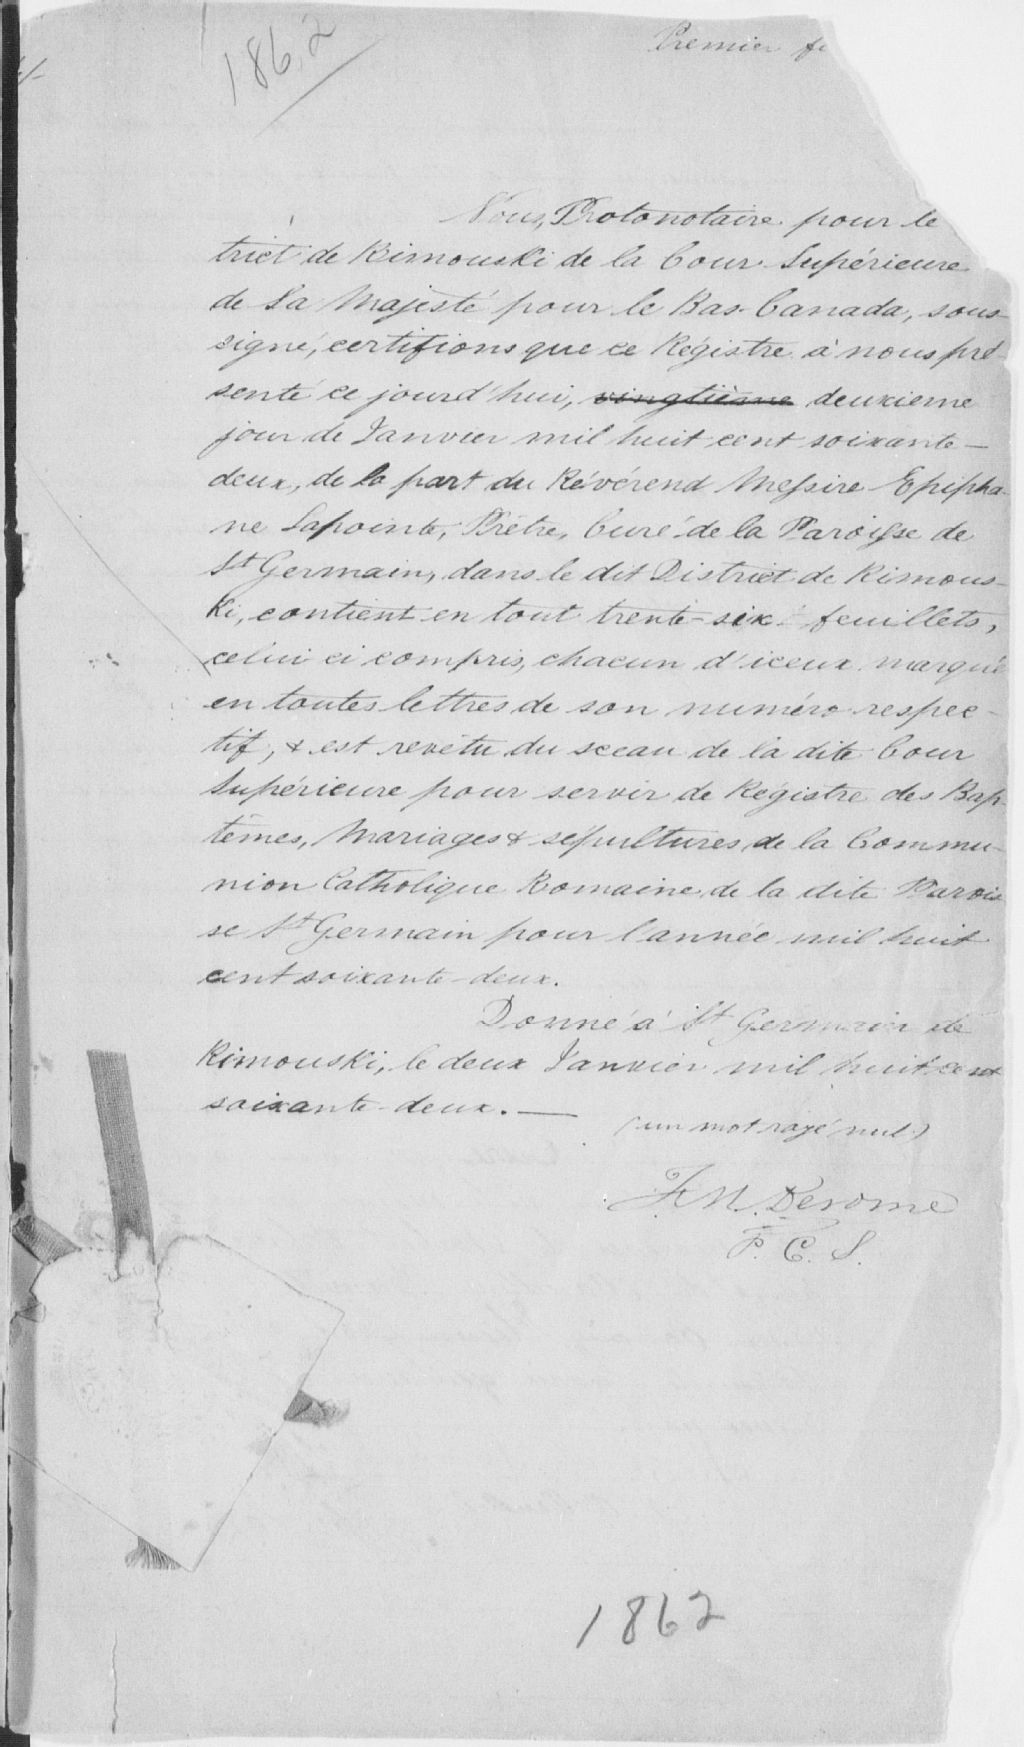 1862
Premier
Nous, Protonotaire pour le
trict de Rimouski de la Cour Supérieure
de Sa Majesté pour le Bas-Canada, sous-
signé, certifions que ce Régistre à nous pré-
senté ce jourd'hui, vingtième deuxieme
jour de Janvier mil huit cent soixante-
deux, de la part du Révérend Messire Epipha-
ne Lapointe, Prêtre, Curé de la Paroisse de
St Germain, dans le dit District de Rimous-
ki, contient en tout trente-six feuillets,
celui ci compris, chacun d'iceux marqué
en toutes lettres de son numéro respec-
tif, & est revêtu du sceau de la dite Cour
Supérieure pour servir de Régistre des Bap-
têmes, Mariages & sépultures de la Commu-
nion Catholique Romaine de la dite Parois
se St Germain pour l'année mil huit
cent soixante-deux.
Donné à St Germain de
Rimouski, le deux Janvier mil huit cent
soixante-deux. —
(un mot rayé nul)
Derome
P. C. S.
1862